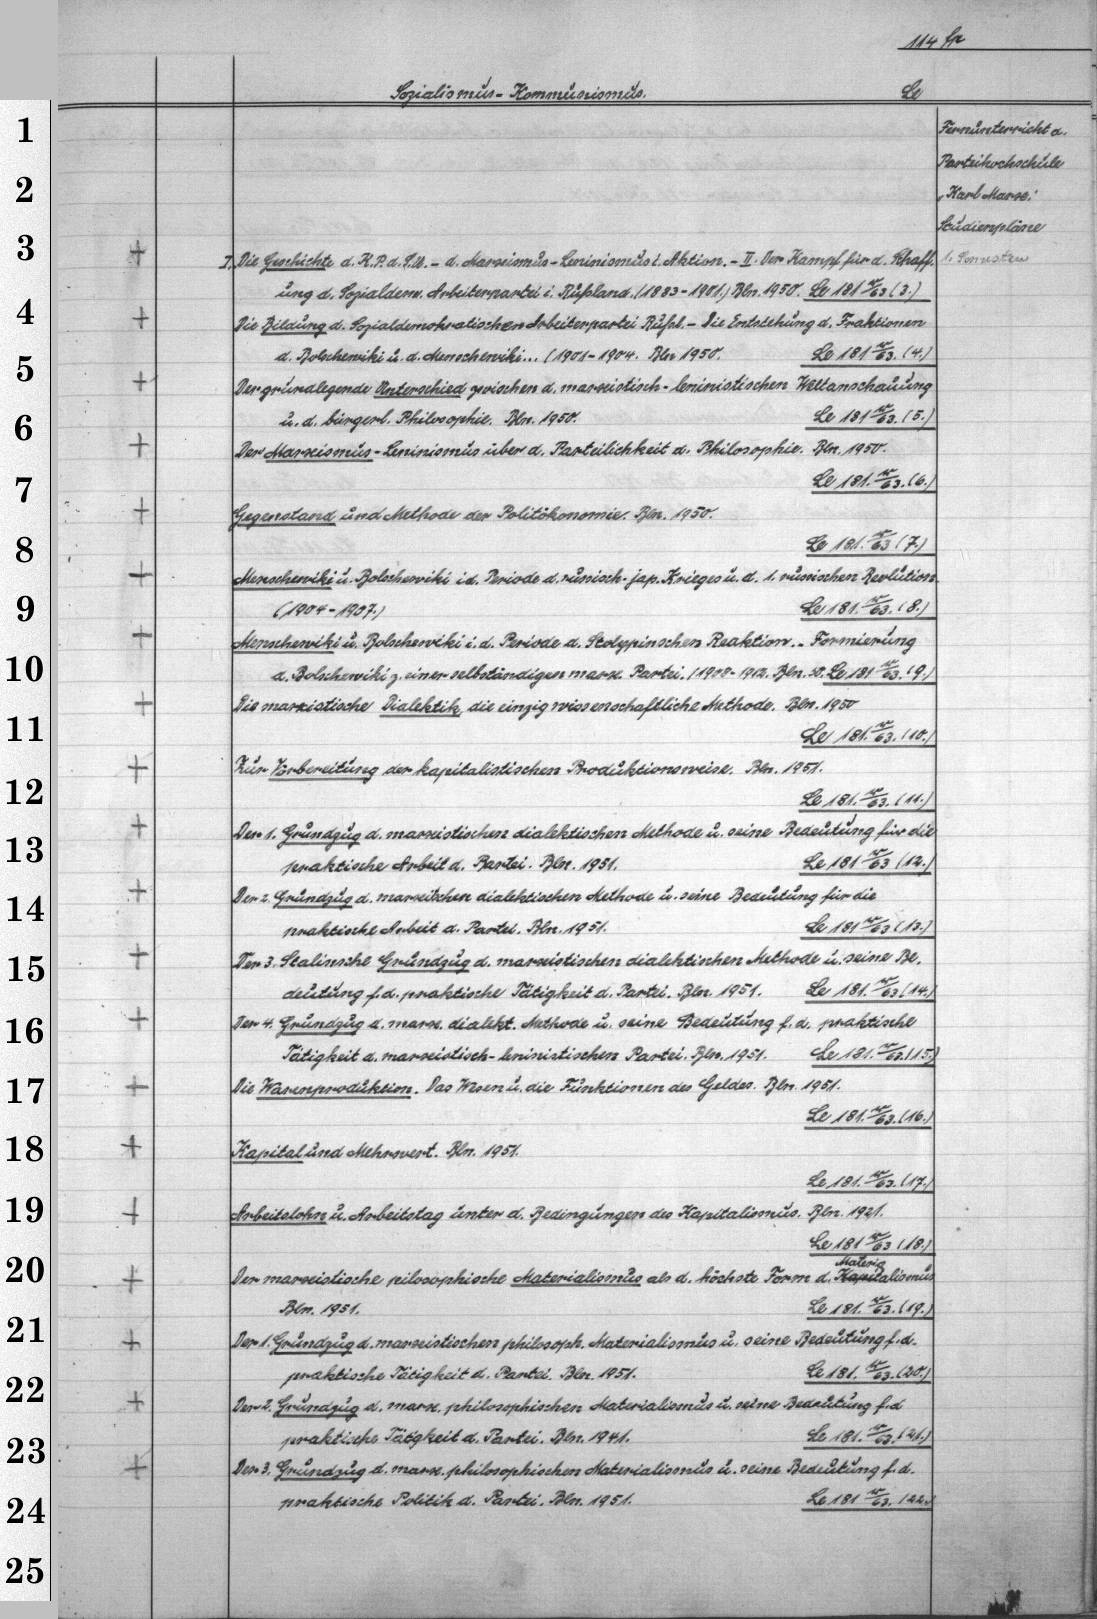 114
Sozialismus - Kommunismus. Le
Fernunterricht a.
Parteihochschule
"Karl Marx."
Studienpläne
1. Semester
1
2
3
I. Die Geschichte d. K.P.d.S.U. - d. Marxismus-Leninismus i. Aktion. - II. Der Kampf für d. Schaff.
ung d. Sozialdem. Arbeiterpartei i. Rußland. (1883-1901.) Bln. 1950. Le 181 w/63 (3.)
4
Die Bildung d. Sozialdemokratischen Arbeiterpartei Rußl. - Die Entstehung d. Fraktionen
d. Bolschewiki u. d. Menschewiki... (1901-1904. Bln 1950. Le 181 w/63. (4.)
5
Der grundlegende Unterschied zwischen d. marxistisch-leninistischen Weltanschauung
u. d. bürgerl. Philosophie. Bln. 1950. Le 181 w/63. (5.)
6
Der Marxismus-Leninismus über d. Parteilichkeit d. Philosophie. Bln. 1950.
Le 181. w/63. (6.)
7
Gegenstand und Methode der Politökonomie. Bln. 1950.
Le 181. w/63 (7.)
8
Menschewiki u. Bolschewiki i d. Periode d. rusisch-jap. Krieges u. d. 1. russischen Revlution
9
(1904-1907.) Le 181. w/63. (8.)
Menschewiki u. Bolschewiki i. d. Periode d. Stolypinschen Reaktion. - Formierung
10
d. Bolschewiki z. einer selbständigen marx. Partei. (1908-1912. Bln. 50. Le 181 w/63. (9.)
Die marxistische Dialektik, die einzig wissenschaftliche Methode. Bln. 1950
11
Le 181. w/63. (10.)
Zur Vorbereitung der kapitalistischen Produktionsweise. Bln. 1951.
12
Le 181. w/63. (11.)
Der 1. Grundzug d. marxistischen dialektischen Methode u. seine Bedeutung für die
13
praktische Arbeit d. Partei. Bln. 1951. Le 181 w/63 (12.)
Der 2. Grundzug d. marxistschen dialektischen Methode u. seine Bedeutung für die
14
praktische Arbeit d. Partei. Bln. 1951. Le 181 w/63 (13.)
Der 3. Stalinsche Grundzug d. marxistischen dialektischen Methode u. seine Be.
15
deutung f. d. praktische Tätigkeit d. Partei. Bln. 1951. Le 181. w/63 (14.)
Der 4. Grundzug d. marx. dialekt. Methode u. seine Bedeutung f. d. praktische
16
Tätigkeit d. marxistisch-leninistischen Partei. Bln. 1951. Le 181. w/63. (15.)
Die Warenproduktion. Das Wesen u. die Funktionen des Geldes. Bln. 1951.
17
Le 181. w/63. (16.)
18
Kapital und Mehrwert. Bln. 1951.
Le 181. w/63. (17.)
19
Arbeitslohn u. Arbeitstag unter d. Bedingungen des Kapitalismus. Bln. 1921.
Le 181 w/63 (18.)
20
Materia
Der marxistische pilosophische Materialismus als d. höchste Form d. Kapitalismus
Bln. 1951. Le 181. w/63. (19.)
21
Der 1. Grundzug d. marxistischen philosoph. Materialismus u. seine Bedeutung f. d.
praktische Tätigkeit d. Partei. Bln. 1951. Le 181. w/63. (20.)
22
Der 2. Grundzug d. marx. philosophischen Materialismus u. seine Bedeutung f. d
praktische Tätgkeit d. Partei. Bln. 1941. Le 181. w/63. (21.)
23
Der 3. Grundzug d. marx. philosophischen Materialismus u. seine Bedeutung f. d.
24
praktische Politik d. Partei. Bln. 1951. Le 181 w/63. (22.)
25